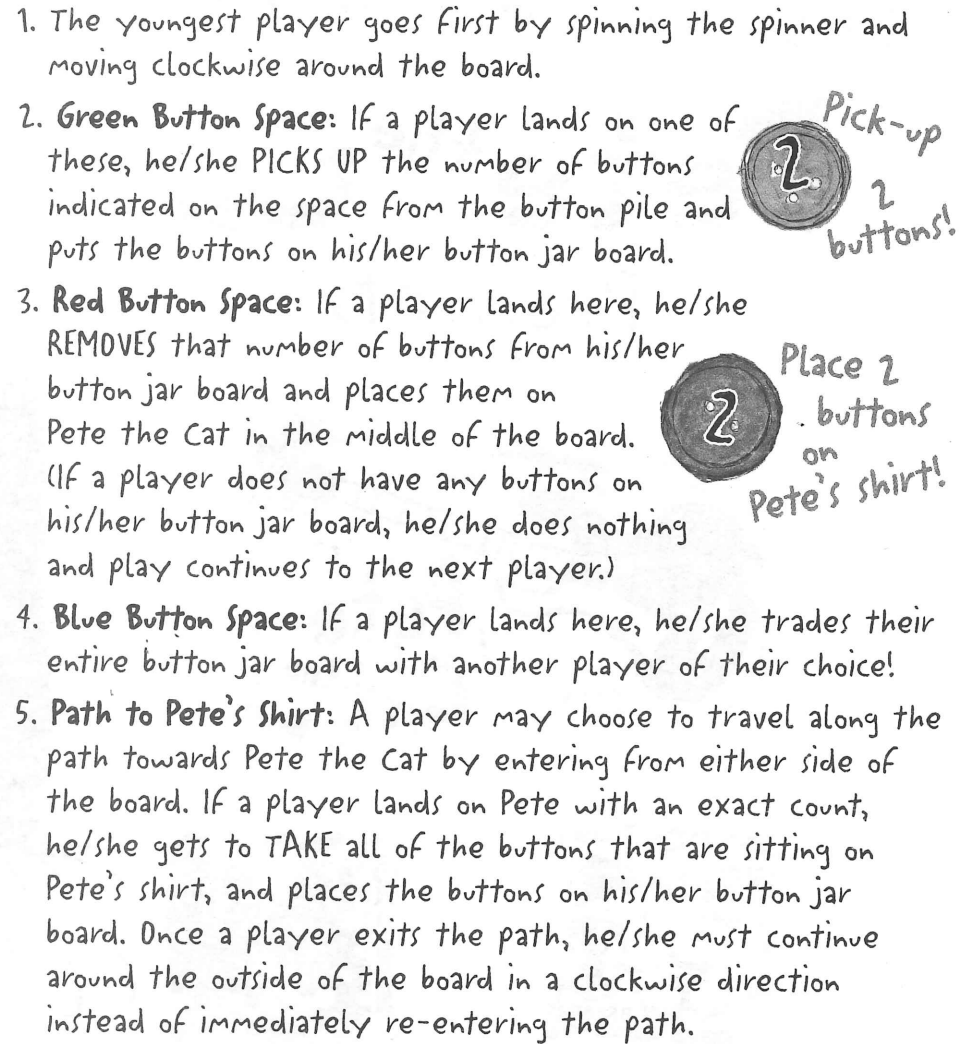 1. The youngest player goes first by spinning the spinner and
moving clockwise around the board.
2. Green Button Space: If a player lands on one of
these, he/she PICKS UP the number of buttons
indicated on the space from the button pile and
puts the buttons on his/her button jar board.
2
Pick-up
2
buttons!
3. Red Button Space: If a player lands here, he/she
REMOVES that number of buttons from his/her
button jar board and places them on
Pete the Cat in the middle of the board.
(If a player does not have any buttons on
his/her button jar board, he/she does nothing
and play continues to the next player.)
2
Place 2
buttons
on
Pete's shirt!
4. Blue Button Space: If a player lands here, he/she trades their
entire button jar board with another player of their choice!
5. Path to Pete's Shirt: A player may choose to travel along the
path towards Pete the Cat by entering from either side of
the board. If a player lands on Pete with an exact count,
he/she gets to TAKE all of the buttons that are sitting on
Pete's shirt, and places the buttons on his/her button jar
board. Once a player exits the path, he/she must continue
around the outside of the board in a clockwise direction
instead of immediately re-entering the path.